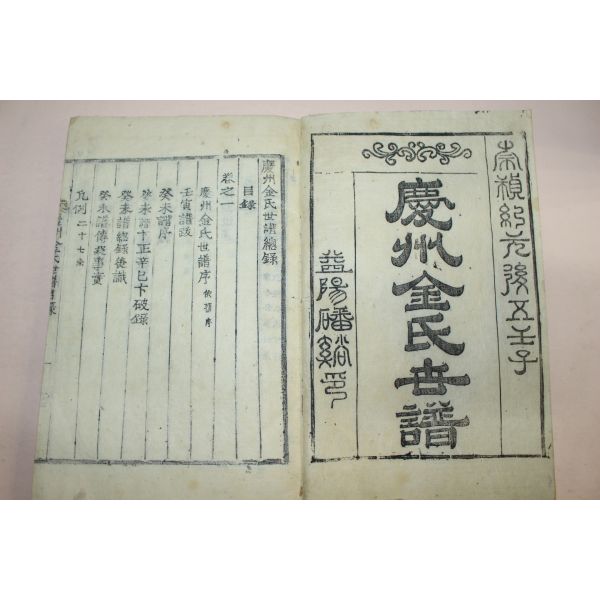 崇禎紀元後五壬子
慶州金氏世譜
益陽磻谿印
慶州金氏世譜總錄
目錄
卷之一
慶州金氏世譜序
壬寅譜跋
癸未譜序
癸未譜卞正辛巳卞破錄
癸未譜總錄後識
癸未譜傳來事實
凡例二十七條